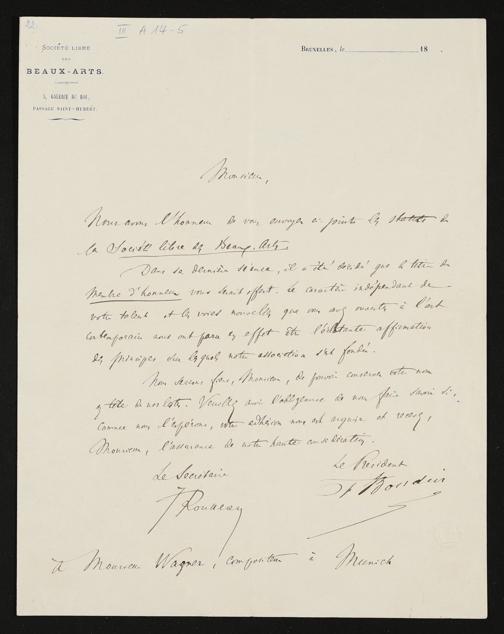 22.
III A 14-5
SOCIÉTÉ LIBRE
DES
BEAUX-ARTS.
5, GALERIE DU ROI,
PASSAGE SAINT-HUBERT.
BRUXELLES, le 18
Monsieur,
Nous avons l'honneur de vous envoyer ci-joints les statuts de
la Société libre des Beaux-Arts.
Dans sa dernière séance, il a été décidé que le titre de
Membre d'honneur vous serait offert. Le caractère indépendant de
votre talent et les voies nouvelles que vous avez ouvertes à l'art
contemporain nous ont paru en effet être l'éclatante affirmation
des principes sur lesquels notre association s'est fondée.
Nous serions fiers, Monsieur, de pouvoir conserver votre nom
en tête de nos listes. Veuillez avoir l'obligeance de nous faire savoir si,
comme nous l'espérons, votre adhésion nous est acquise et recevez,
Monsieur, l'assurance de notre haute considération.
Le Secrétaire
Le Président
à Monsieur Wagner, compositeur à Munich